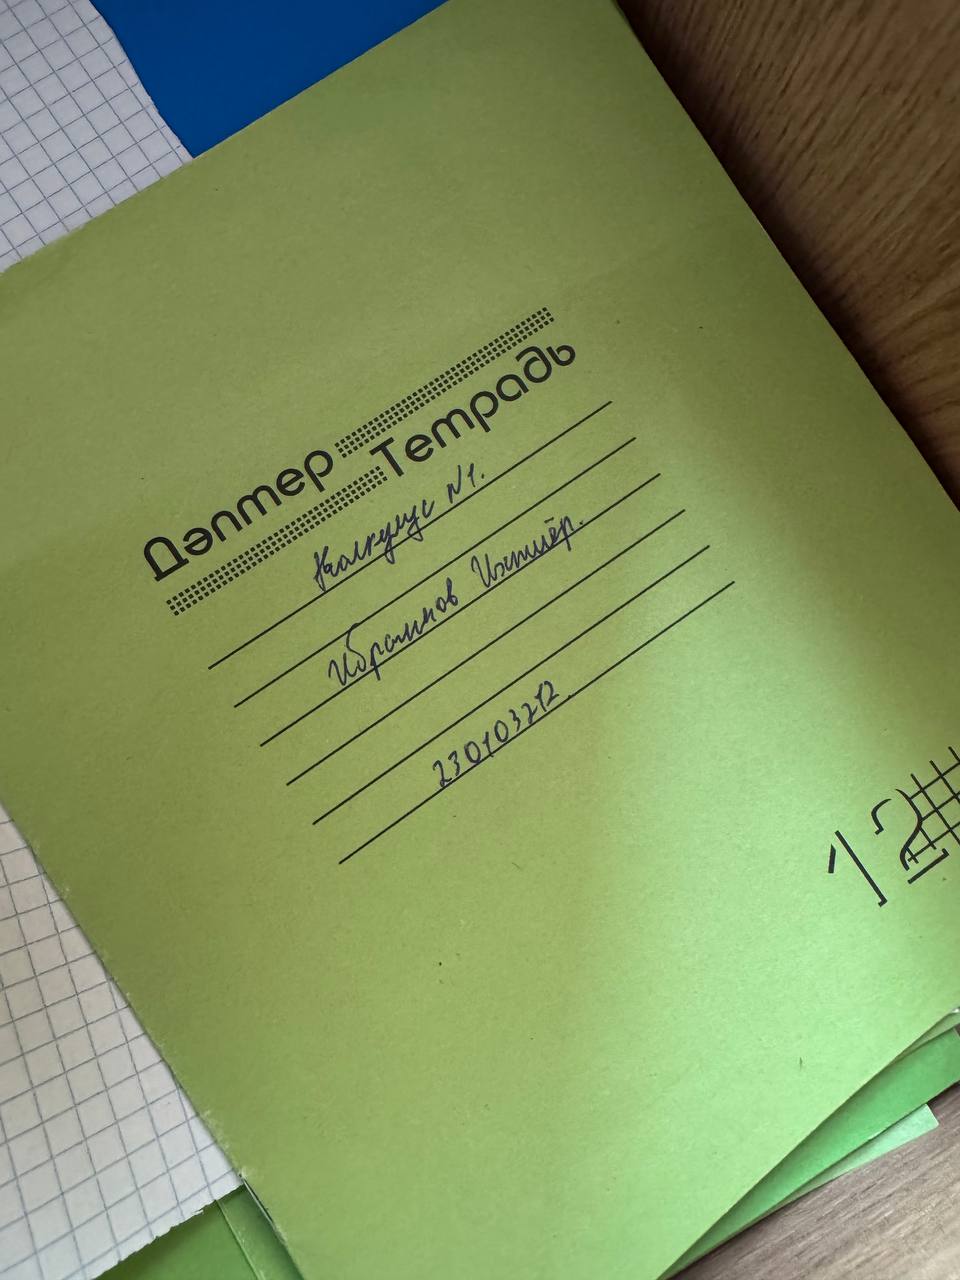 Дәптер
Тетрадь
Калкулус N1.
Ибрагимов Ихтиёр.
230103212
12